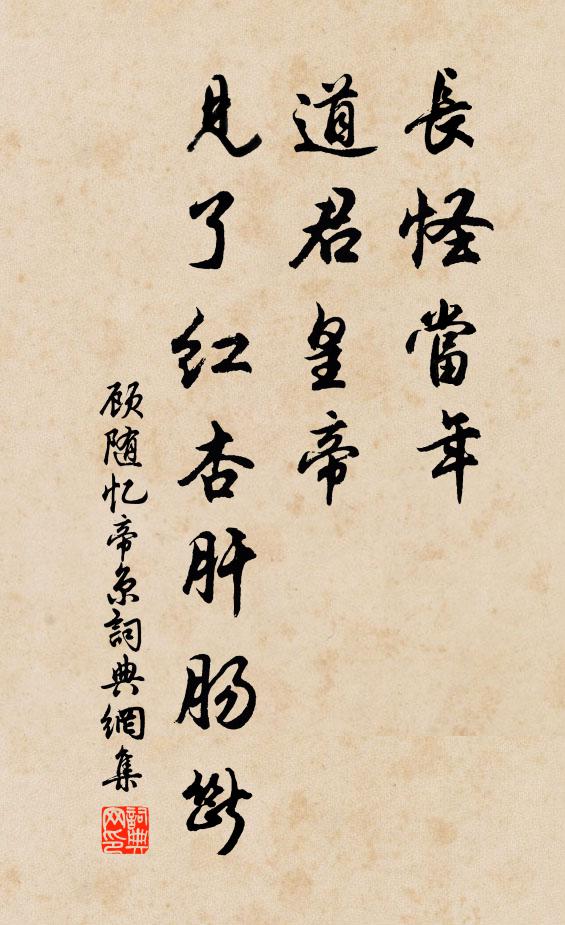 長怪當年
道君皇帝
見了红杏肝肠斷
顾随忆帝京詞典網集
詞典
网印